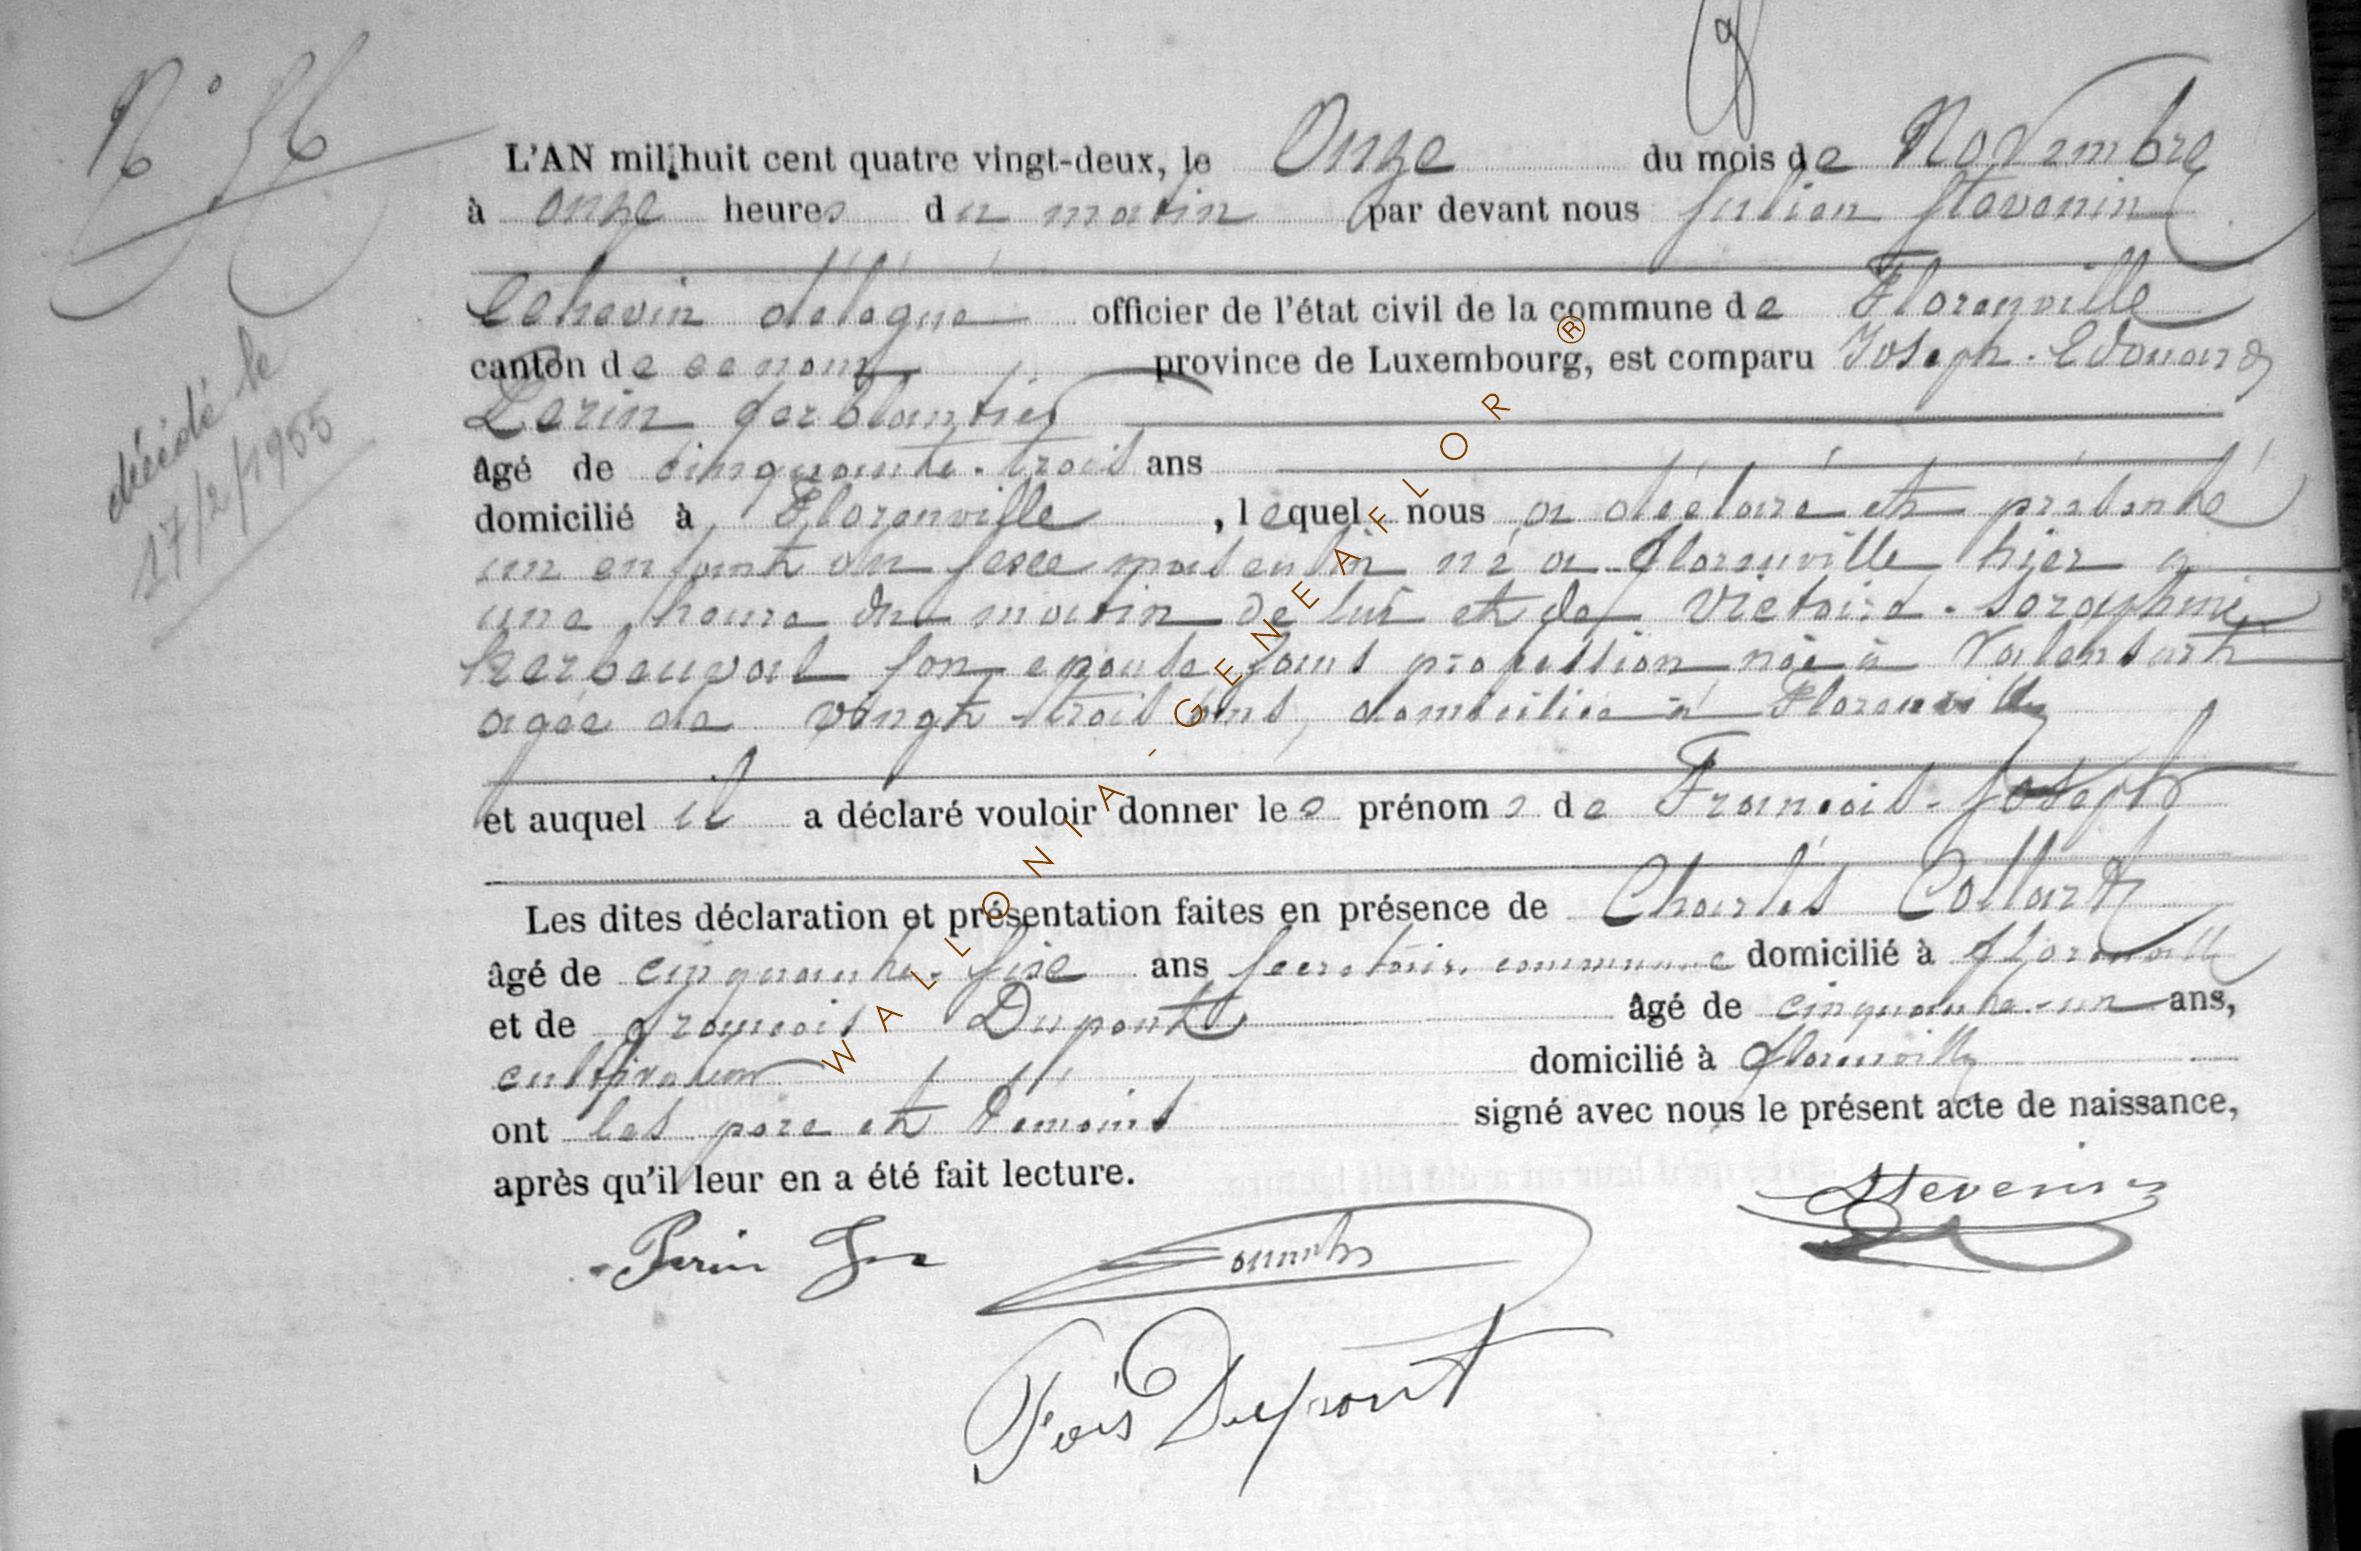 N° 56
décédé le
17/2/1955
L'AN mil huit cent quatre vingt-deux, le Onze du mois de Novembre
à onze heures du matin par devant nous Julien Stevenin
Echevin délégué officier de l'état civil de la commune de Florenville
canton de ce nom province de Luxembourg, est comparu Joseph-Edouard
Perin ferblantier
âgé de cinquante-trois ans
domicilié à Florenville, lequel nous a déclaré et présenté
un enfant du sexe masculin né a Florenville hier a
une heure du matin de lui et de Victoire-Seraphine
son epouse sans profession née à Valensart
agée de vingt-trois ans, domiciliée à Florenville
et auquel il a déclaré vouloir donner les prénoms de François-Joseph
Les dites déclaration et présentation faites en présence de Charles Collard
âgé de cinquante-six ans secretaire communal domicilié à Florenville
et de François Dupont âgé de cinquante-un ans,
cultivateur domicilié à Florenville
ont les pere et témoins signé avec nous le présent acte de naissance,
après qu'il leur en a été fait lecture.
Perin Stevenin
Fcois Dupont
WALLONIA-GENEAFLOR®